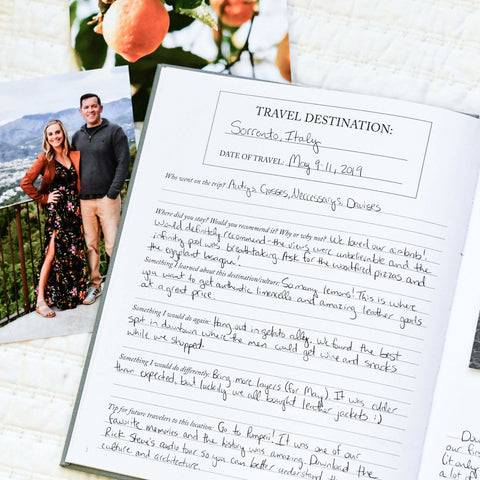 TRAVEL DESTINATION:
Sorrento, Italy
DATE OF TRAVEL: May 9-11, 2019
Who went on the trip? Audrys, Crosses, Meccarsays, Davises
Where did you stay? Would you recommend it? Why or why not? We loved our airbnb!
Would definitely recommend - the views were unbelievable and the
infinity pool was breathtaking. Ask for the woodfired pizzas and
the eggplant lasagna!
Something I learned about this destination/culture: So many lemons! This is where
you want to get authentic limoncello and amazing leather goods
at a great price.
Something I would do again: Hang out in gelato alley. We found the best
spot in downtown where the men could get wine and snacks
while we shopped.
Something I would do differently: Bring more layers (for May). It was colder
than expected, but luckily we all bought leather jackets :)
Tip for future travelers to this location: Go to Pompeii! It was one of our
favorite memories and the history was amazing. Download the
Rick Steve's audio tour so you can better understand the
culture and architecture.
our firs
(it only
a lot o